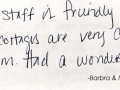 staff is friendly
cottages are very c
m. Had a wonde
-Barbra & M